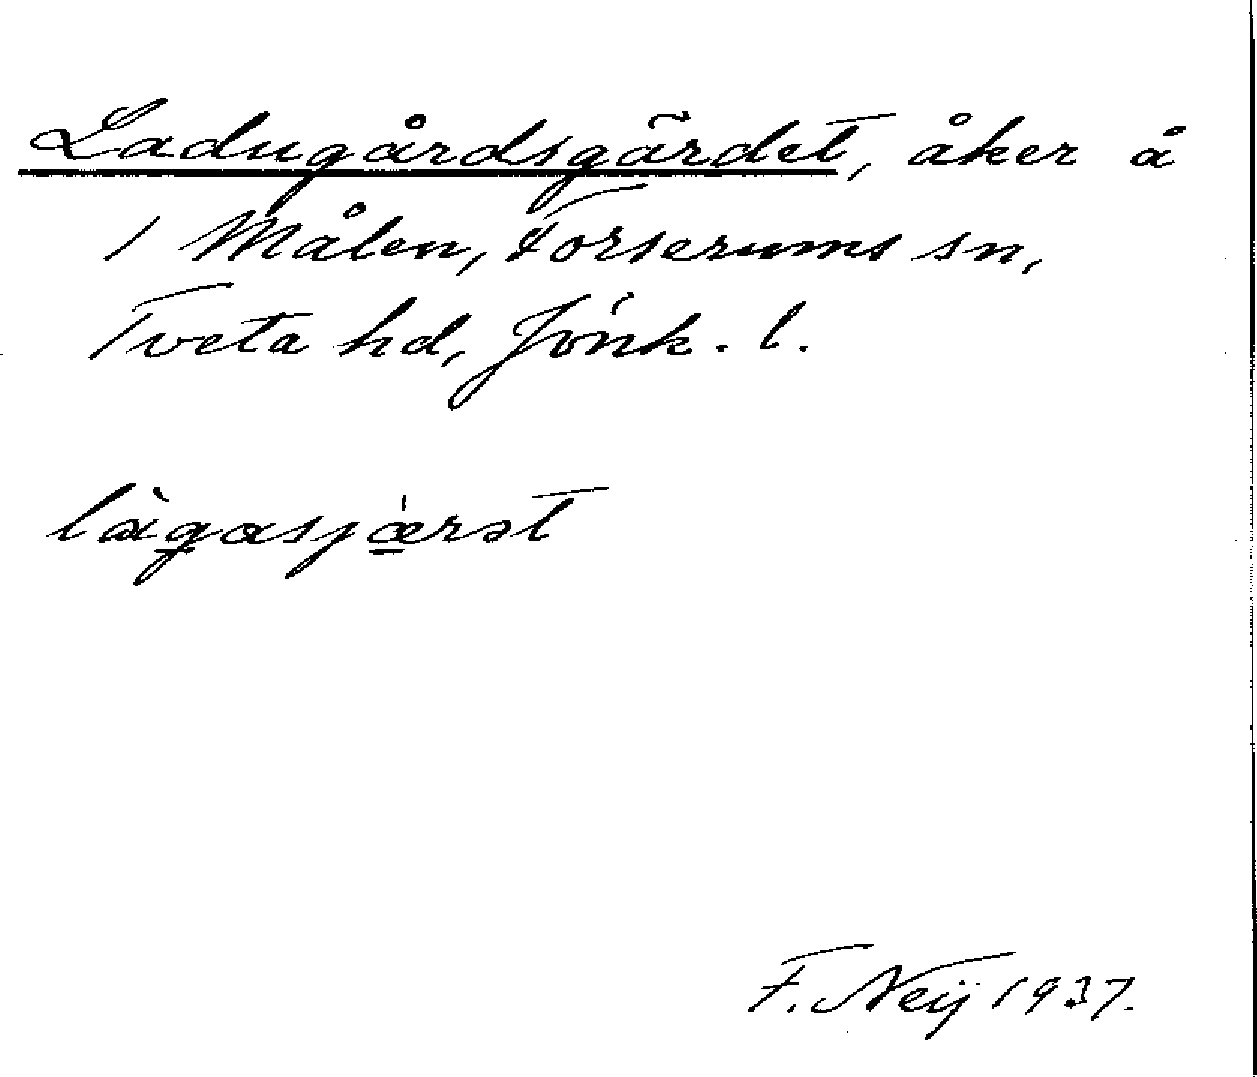 Ladugårdsgärdet, åker å
1 Målen, Forserums sn,
Tveta hd, Jönk. l.
làgasjærət
F. Neij 1937.